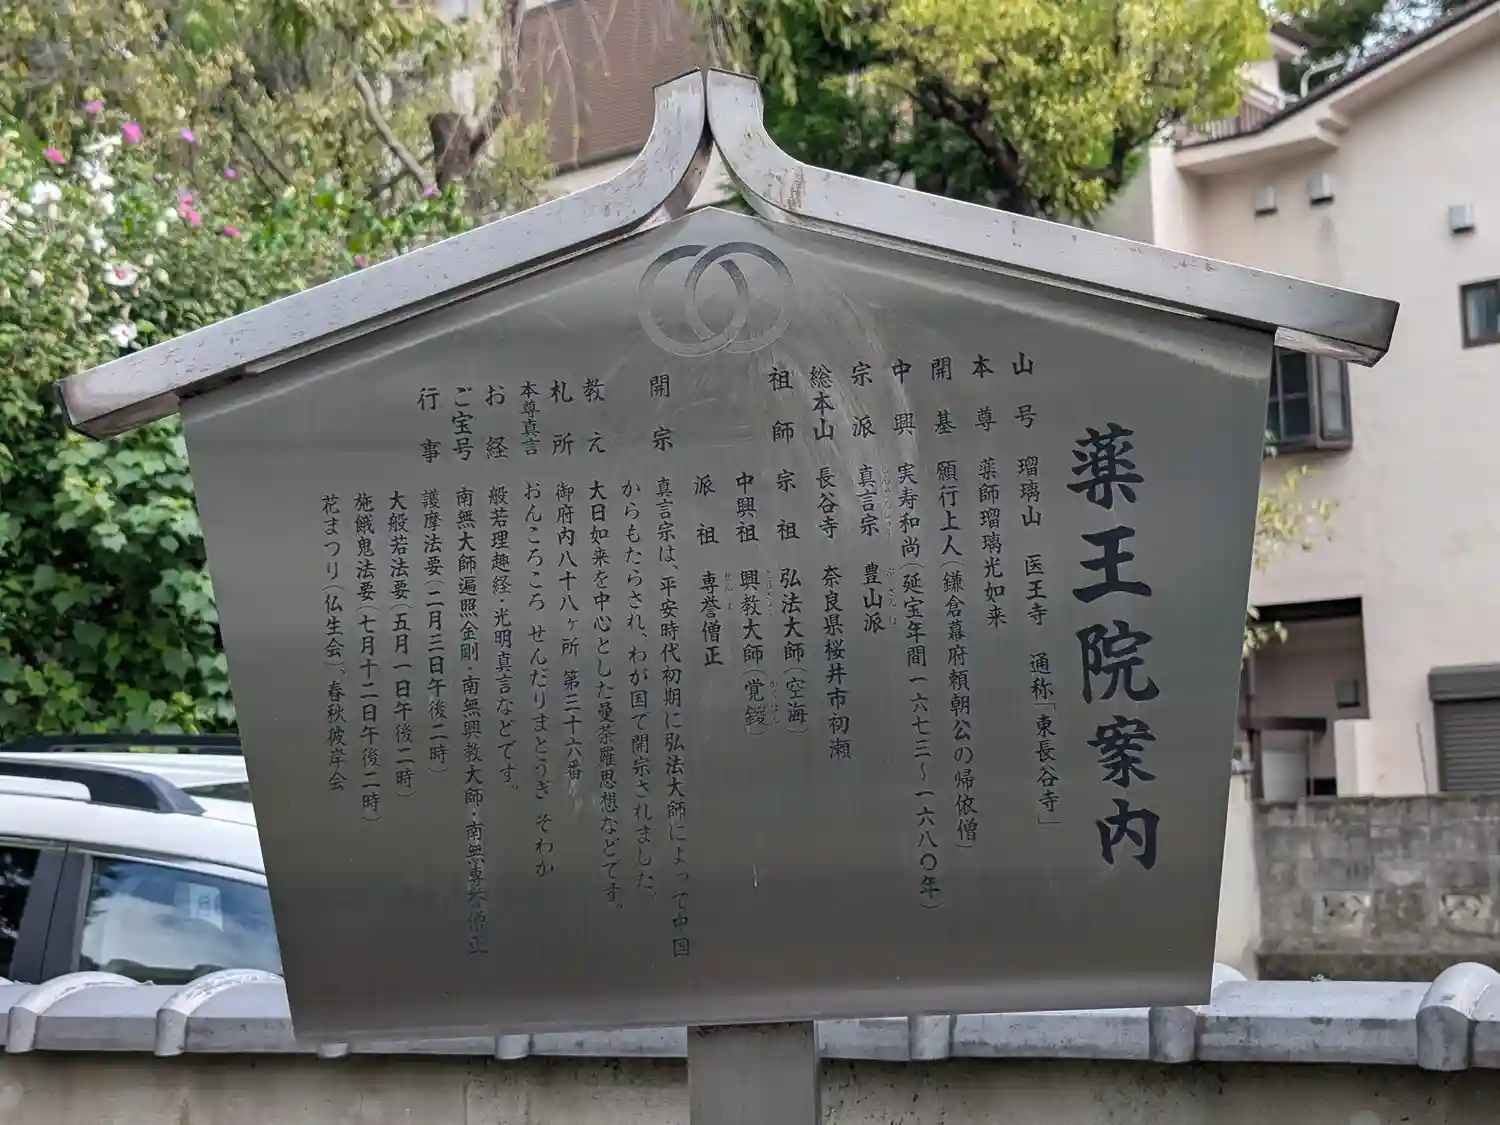 薬王院案内
山号 瑠璃山 医王寺 通称「東長谷寺」
本尊 薬師瑠璃光如来
開基 願行上人(鎌倉幕府頼朝公の帰依僧)
中興 実寿和尚(延宝年間一六七三〜一六八〇年)
宗派 真言宗 豊山派
総本山 長谷寺 奈良県桜井市初瀬
祖師 宗祖 弘法大師(空海)
中興祖 興教大師(覚鑁)
派祖 専誉僧正
開宗 真言宗は、平安時代初期に弘法大師によって中国
からもたらされ、わが国で開宗されました。
教え 大日如来を中心とした曼荼羅思想などです。
札所 御府内八十八ヶ所 第三十六番
本尊真言 おんころころ せんだりまとうぎ そわか
お経 般若理趣経・光明真言などです。
ご宝号 南無大師遍照金剛・南無興教大師・南無専誉僧正
行事 護摩法要(二月三日午後二時)
大般若法要(五月一日午後二時)
施餓鬼法要(七月十二日午後二時)
花まつり(仏生会)、春秋彼岸会